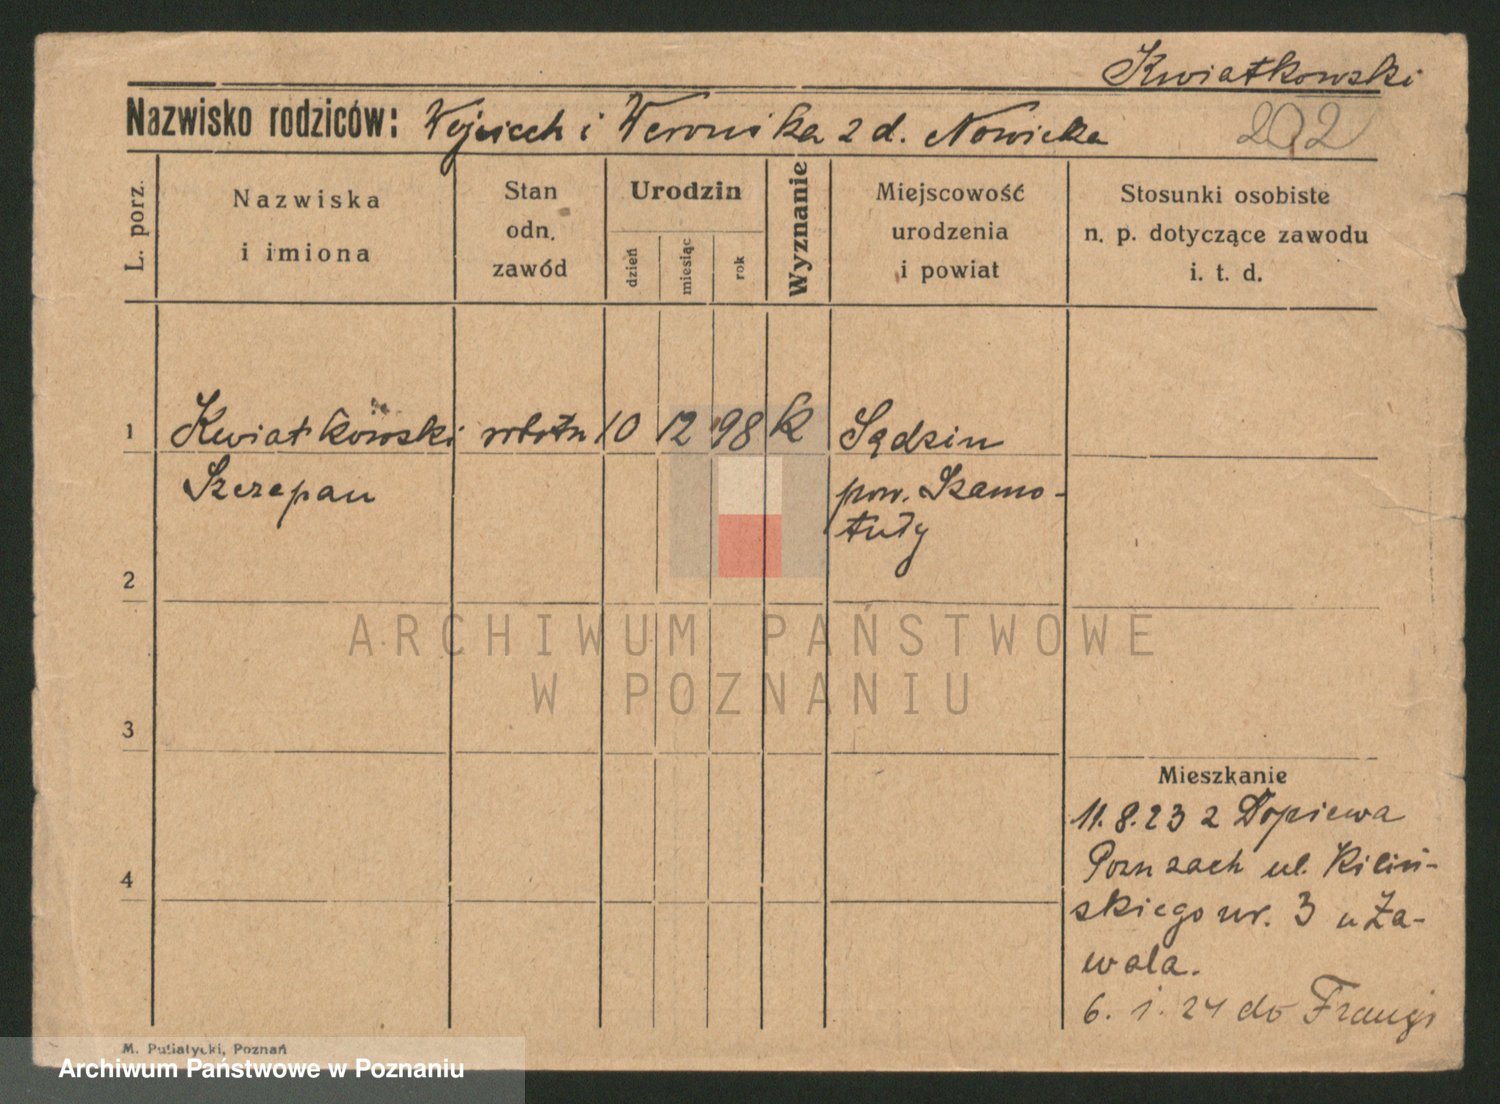 Kwiatkowski
Nazwisko rodziców: Wojciech i Weronika z d. Nowicka
202
L. porz.
Nazwiska
i imiona
Stan
odn.
zawód
Urodzin
dzień
miesiąc
rok
Wyznanie
Miejscowość
urodzenia
i powiat
Stosunki osobiste
n. p. dotyczące zawodu
i. t. d.
1 Kwiatkowski robotn 10 12 98 k Sędzin
Szczepan pow. Szamo-
tuły
2
3
4
Mieszkanie
11.8.23 z Dopiewa
ul. Kiliń-
skiego nr. 3 u Za-
wala.
6. 1. 24 do Francji
M. Putiatycki, Poznań
ARCHIWUM PAŃSTWOWE
W POZNANIU
Archiwum Państwowe w Poznaniu